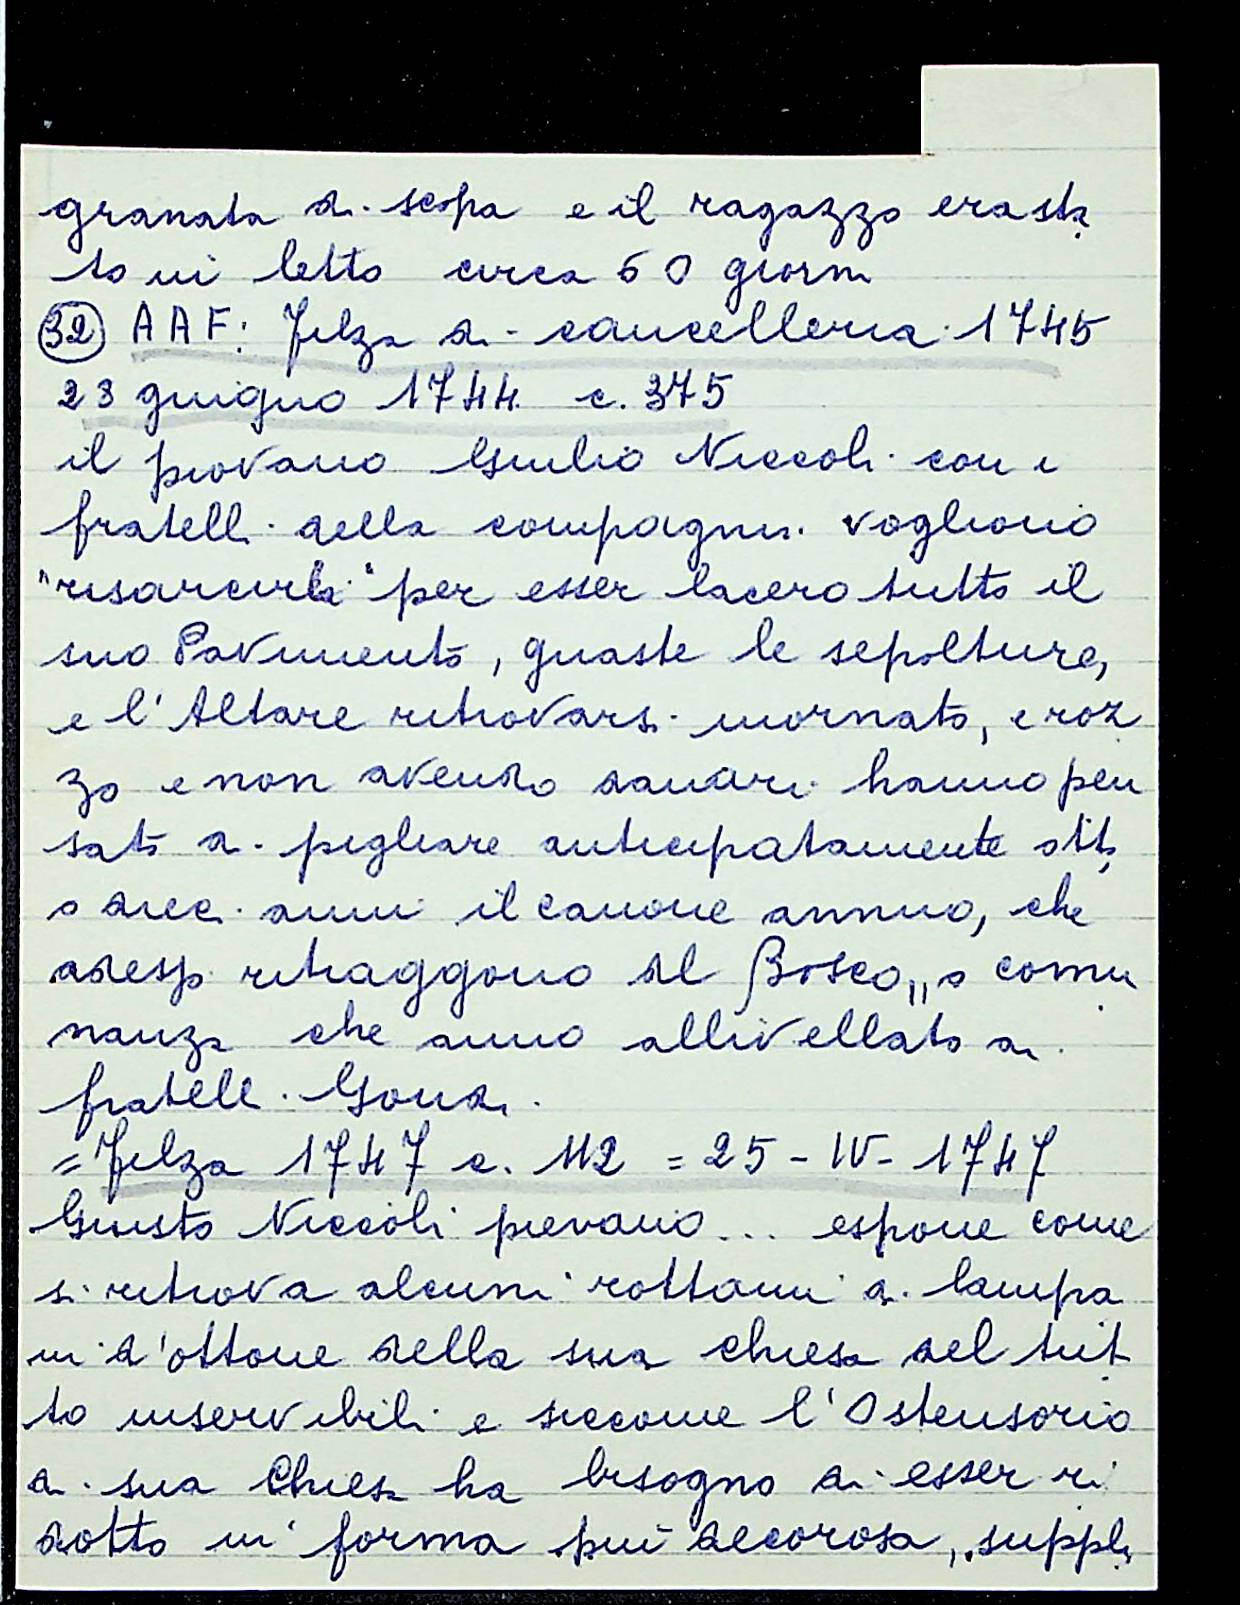 granata di scopa e il ragazzo era sta
to in letto circa 60 giorni
32 AAF: Filza di cancelleria 1745
23 giugno 1744 c. 375
il piovano Giulio Niccoli con i
fratelli della compagnia vogliono
"risarcirla" per esser lacero tutto il
suo Pavimento, guaste le sepolture,
e l'Altare ritrovarsi inornato, e roz
zo e non avendo danari hanno pen
sato di pigliare anticipatamente otto
o dieci anni il canone annuo, che
adesso ritraggono dal Bosco, o comu
nanza che anno allivellato ai
fratelli Gondi.
= Filza 1747 c. 112 = 25-IV-1747
Giusto Niccoli pievano... espone come
si ritrova alcuni rottami di lampa
ni d'ottone della sua chiesa del tut
to inservibili e siccome l'Ostensorio
di sua Chiesa ha bisogno di esser ri
dotto in forma più decorosa, suppli